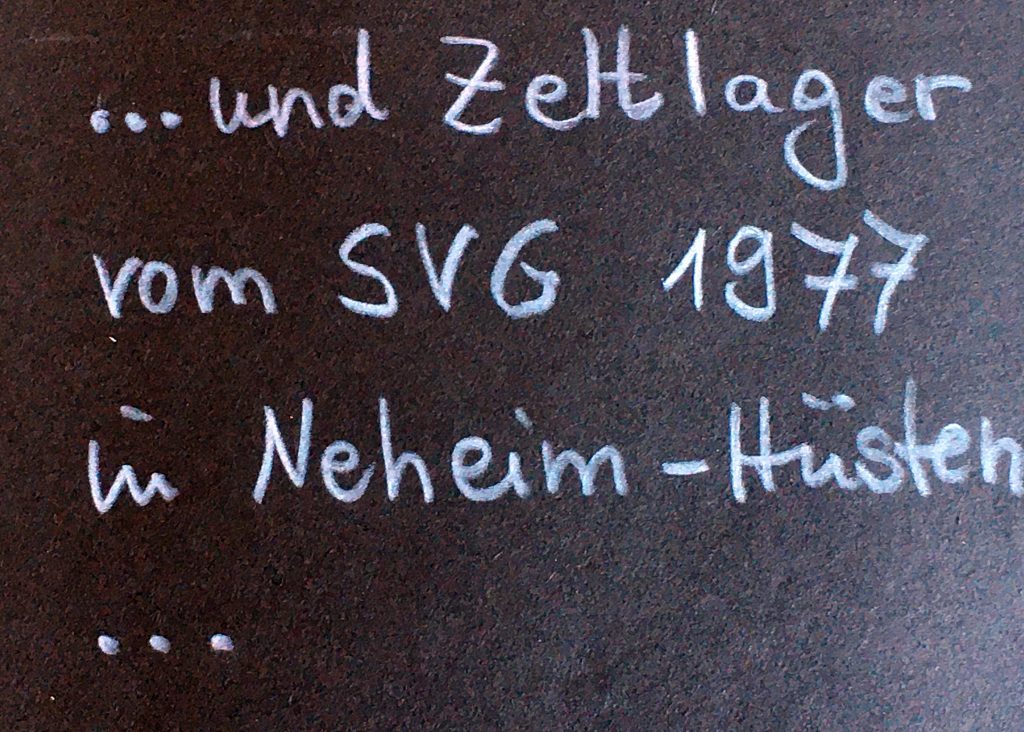 ...und Zeltlager
vom SVG 1977
in Neheim-Hüsten
...